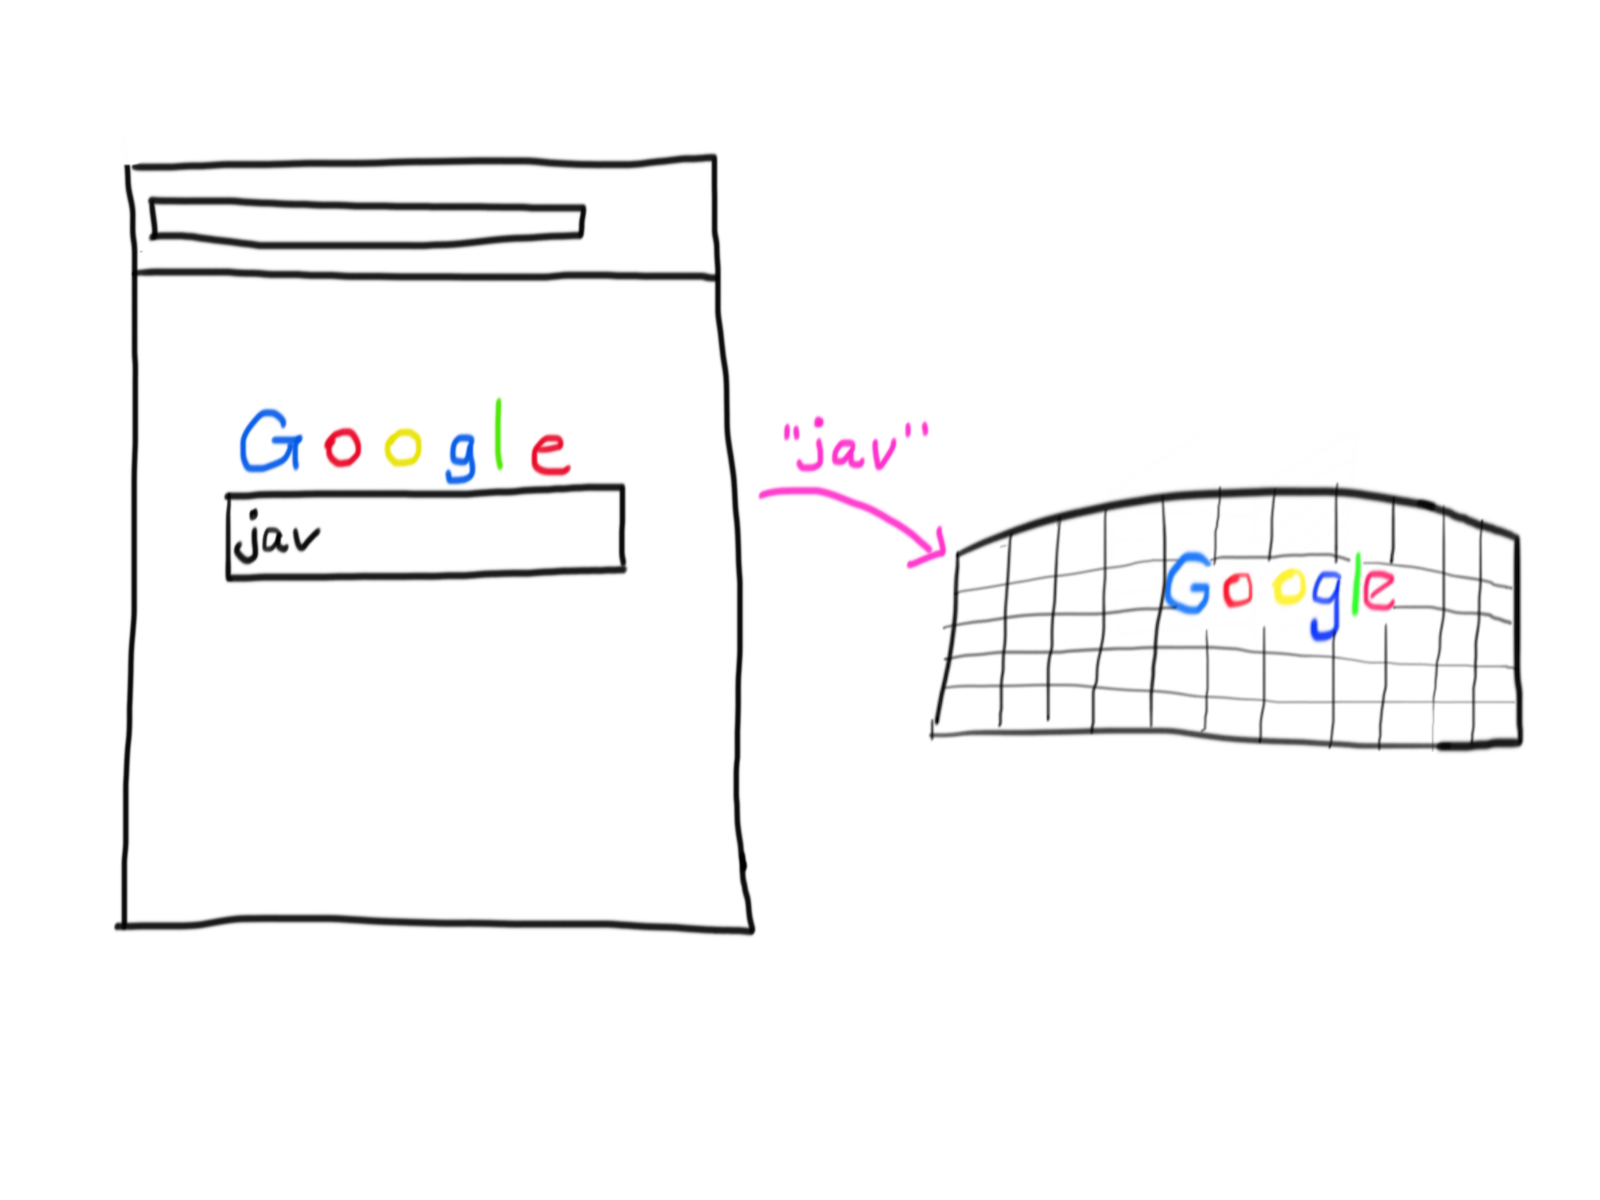 Google
jav
"jav"
Google